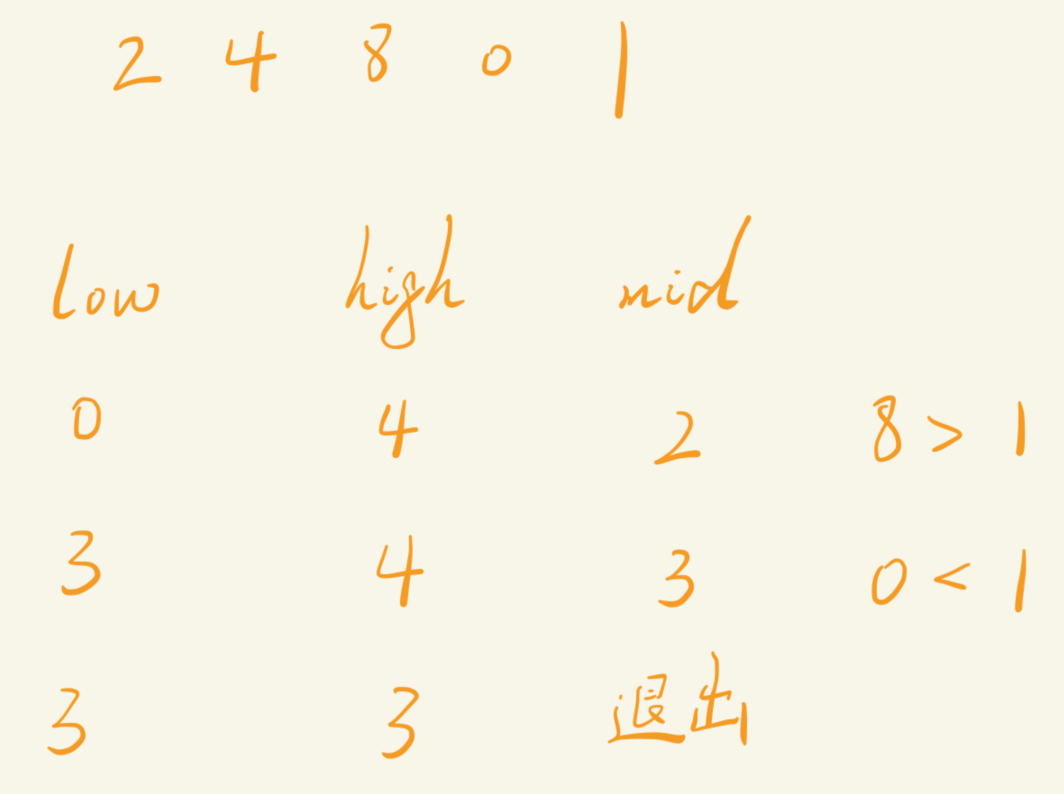 2 4 8 0 1
low high mid
0 4 2 8 > 1
3 4 3 0 < 1
3 3 退出